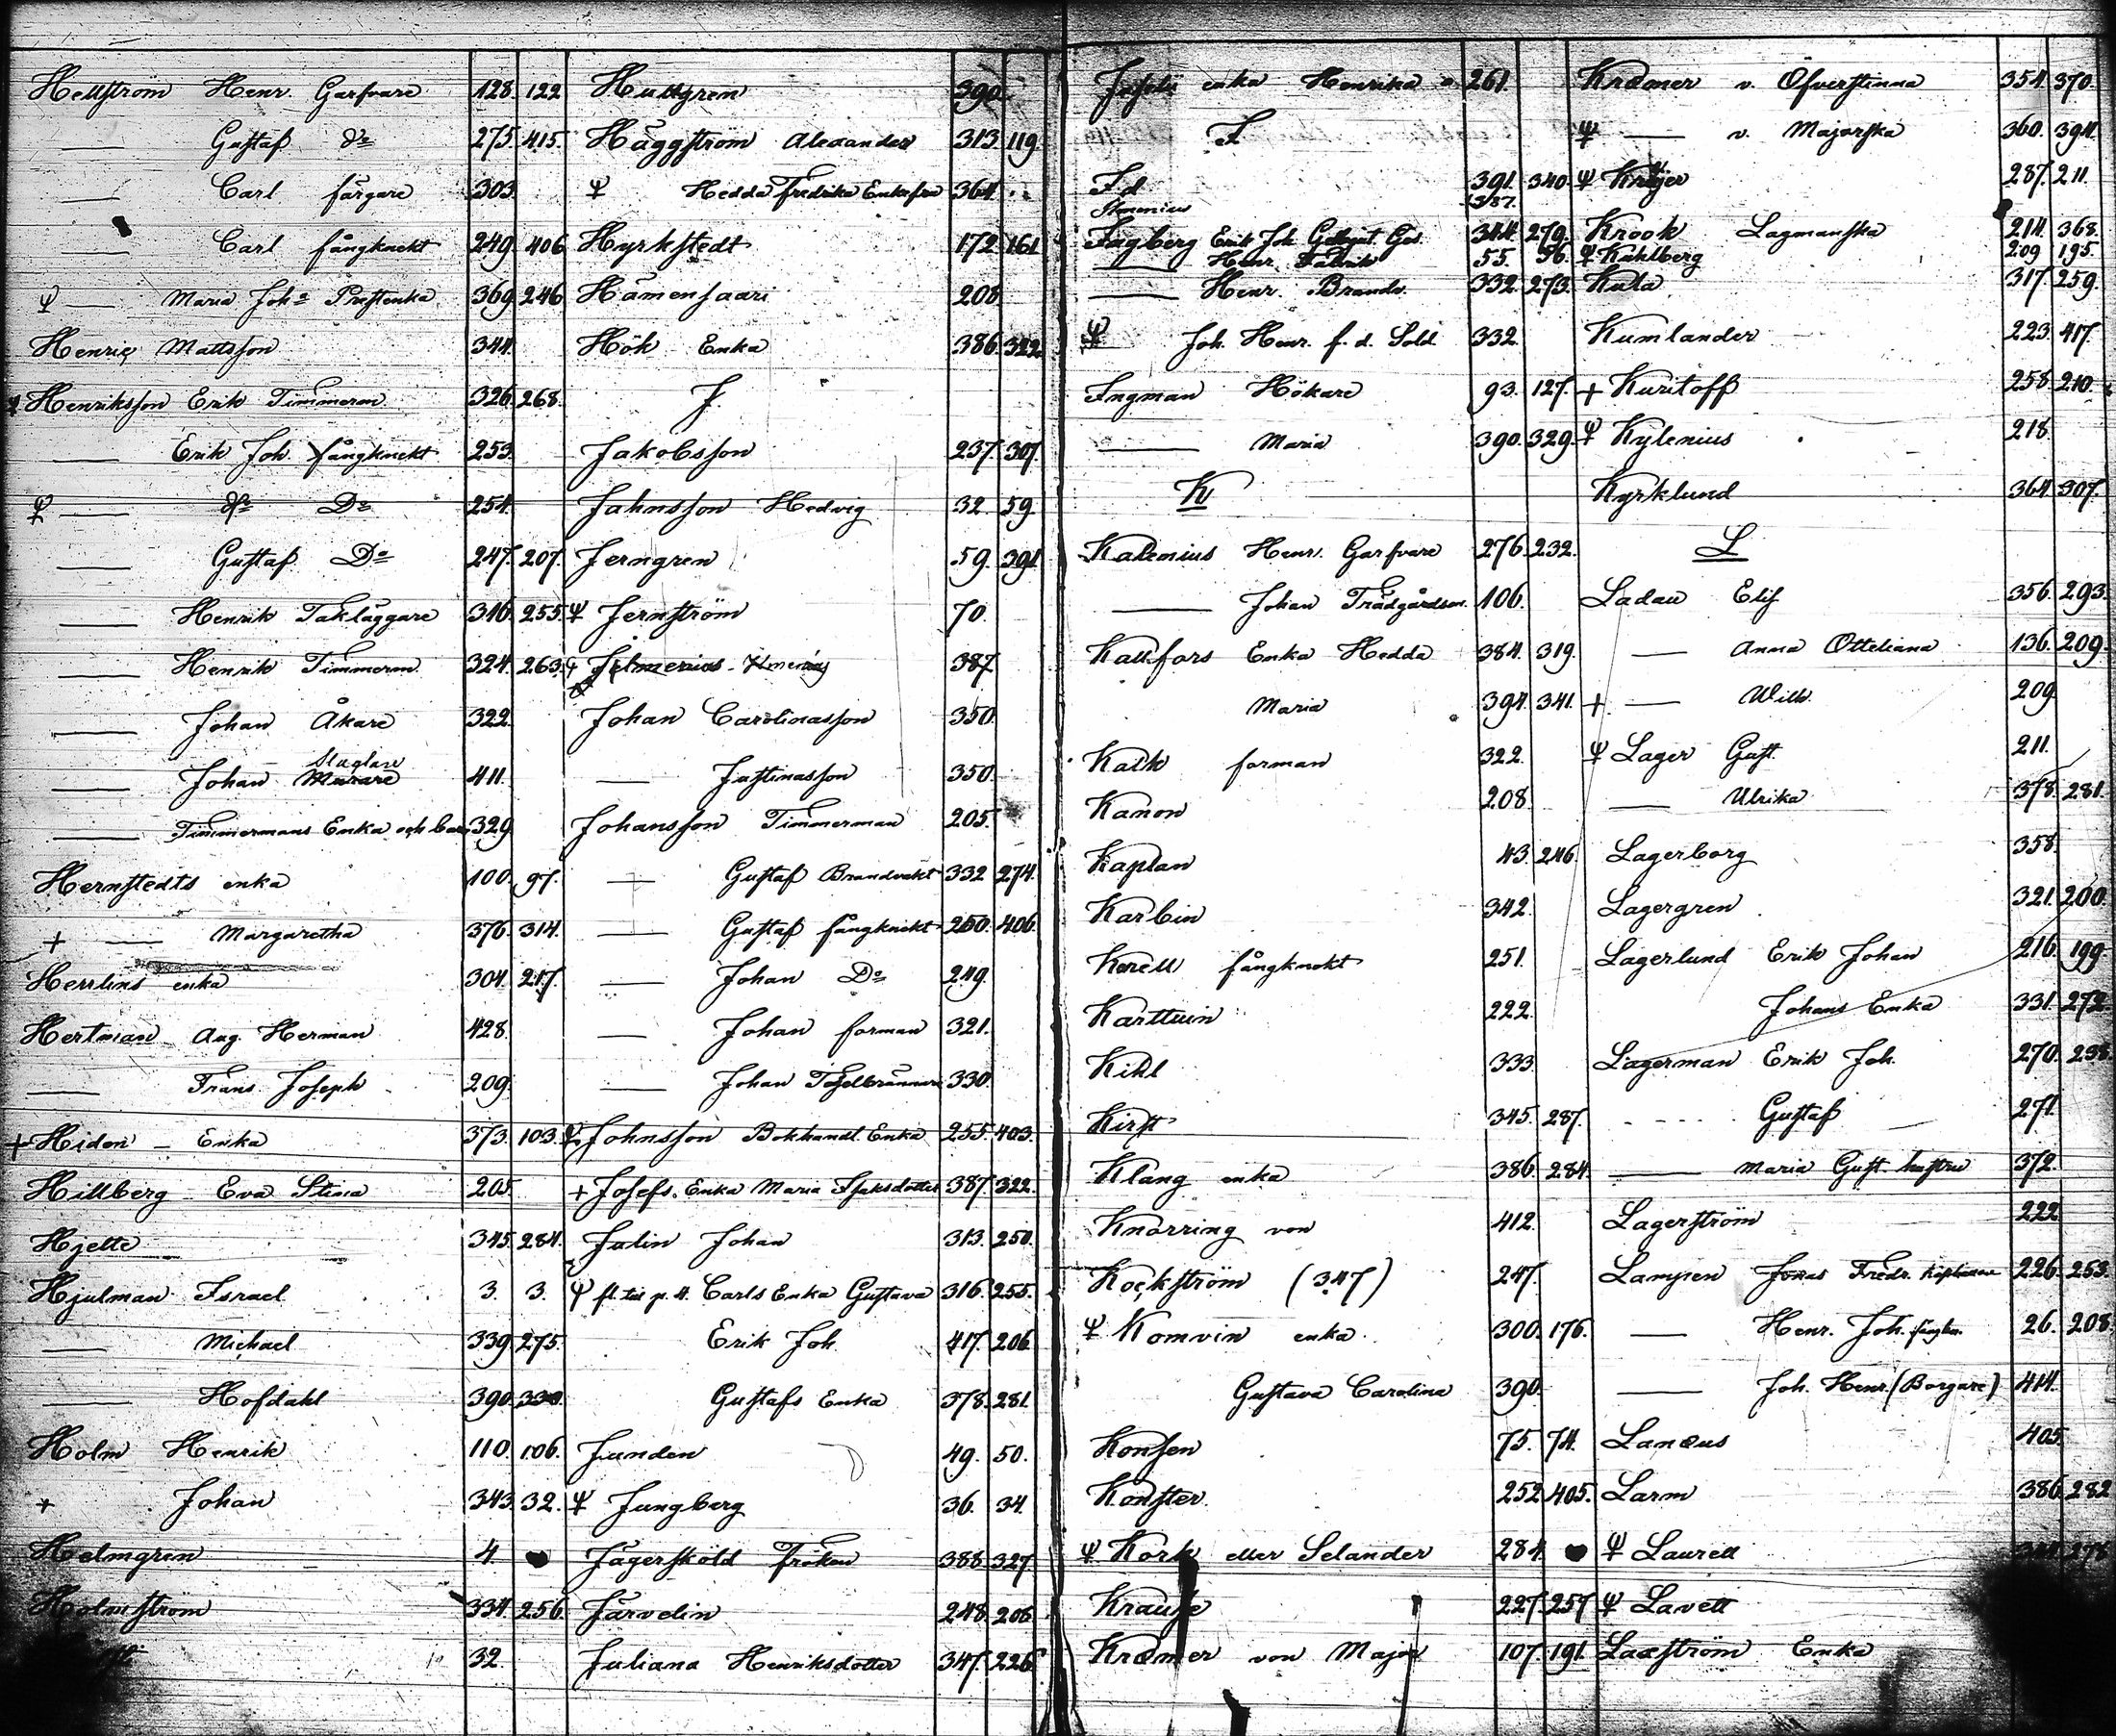 Hellström Henr. Garfvare 128. 122
—— Gustaf Do 275. 415.
—— Carl färgare 303.
—— Carl fångknekt 249. 406
Ψ —— Maria Joha Prestenka 369 246
Henric Mattsson 344.
Henriksson Erik Timmerm. 326. 268.
—— Erik Joh. fångknekt 253.
Ψ —— Do Do 254.
—— Gustaf Do 247. 207.
—— Henrik Takläggare 316. 255.
—— Henrik Timmerm. 324. 263.
—— Johan Åkare 322.
Slagtare
—— Johan Murare 411.
—— Timmermans Enka och barn 329.
Hernstedts enka 100. 97.
+ —— Margaretha 376. 314.
Herrlins enka 304. 217.
Hertman Aug. Herman 428.
—— Frans Joseph 209.
+ Hiden — Enka 373. 103.
Hillberg Eva Stina 205.
Hjelte 345. 284.
Hjulman Israel 3. 3.
—— Michael 339 275.
—— Hofdahl 390. 330.
Holm Henrik 110. 106.
+ Johan 343. 32.
Holmgren 4.
Holmström 334. 256.
32.
Hultgren 390.
Häggström Alexander 313. 119.
Ψ Hedda Fredrika Enkefru 364.
Hyrkstedt 172 161
Hämensaari 208.
Hök Enka 386. 322.
J.
Jakobsson 237. 307.
Jahnsson Hedvig 32. 59.
Jerngren 59. 391
Ψ Jernström 70.
387
Johan Carolinasson 350.
—— Justinasson 350.
Johansson Timmerman 205.
—— Gustaf Brandvakt 332 274.
—— Gustaf fångknekt 250. 406.
—— Johan Do 249.
—— Johan forman 321.
—— Johan 330.
Ψ Johnsson Bokhandl. Enka 255. 403.
+ Josefs. Enka Maria Isaksdotter 387. 322.
Julin Johan 313. 250.
Ψ Carls Enka Gustava 316. 255.
Erik Joh. 417. 206.
Gustafs Enka 378. 281.
Junden 49. 50.
Ψ Jungberg 36. 34.
Jägersköld Fröken 388. 327.
Järvelin 248. 206.
Juliana Henriksdotter 347. 226.
enka Henrika 261.
I
391. 340.
Ingberg Erik Joh. 344. 279.
—— Henr. 55. 56.
—— Henr. Brandv. 332. 273.
Ψ Joh. Henr. f. d. Sold 332.
Ingman Hökare 93. 127.
—— Maria 390. 329.
K
Kalenius Henr. Garfvare 276. 232.
—— Johan Trädgårdsm. 106.
Kallfors Enka Hedda 384. 319.
Maria 394. 341.
Kalk forman 322.
Kanon 208.
Kaplan 43. 246.
Karbin 342.
Korell fångknekt 251.
Karttuin 222.
Kihl 333.
Kirst 345. 287.
Klang enka 386. 284.
Knorring von 412.
Kockström (347) 247.
Ψ Komvin enka 300. 176.
Gustava Carolina 390.
Konsen 75. 74.
Konster 252. 405.
Ψ Kork eller Selander 284.
Krause 227. 257
Kræmer von Major 107. 191.
Kræmer v. Öfverstinna 354. 370.
Ψ —— v. Majorska 360. 394.
Ψ Kröjer 287. 211.
Krook Lagmanska 214. 368.
Ψ Kuhlberg 209 195.
Kula 317. 259.
Kumlander 223. 417.
+ Kuritoff 258. 210.
Ψ Kylenius 218.
Kyrklund 364. 307.
L
Ladau Elis 356. 293.
—— Anna Otteliana 136. 209.
+ —— Wilh. 209
Ψ Lager Gust. 211.
—— Ulrika 378. 281.
Lagerborg 358.
Lagergren 321. 200.
Lagerlund Erik Johan 216. 199.
Johans Enka 331. 272.
Lagerman Erik Joh. 270. 238.
Gustaf 271.
—— Maria Gust. hustru 372.
Lagerström 222
Lampen Jonas Fredr. 226. 253.
—— Henr. Joh. 26. 208.
—— Joh. Henr. (Borgare) 414.
Lanæus 405.
Larm 386. 282
Ψ Laurell 278
Ψ Lavett
Laxström Enka